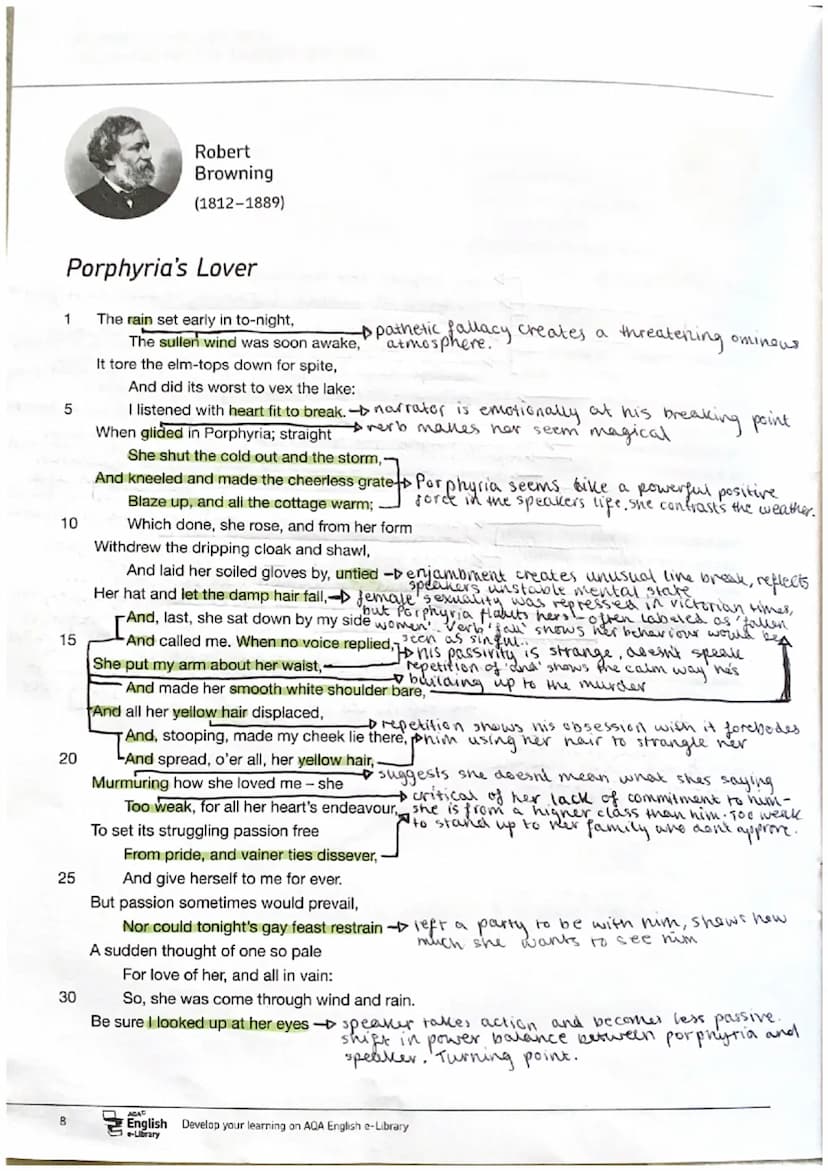 Robert
Browning
(1812–1889)
Porphyria's Lover
1 The rain set early in to-night,
The sullen wind was soon awake,
pathetic fallacy creates a threatening ominous
atmosphere.
It tore the elm-tops down for spite,
And did its worst to vex the lake:
5 I listened with heart fit to break. narrator is emotionally at his breaking point
When glided in Porphyria; straight verb makes her seem magical
She shut the cold out and the storm,
And kneeled and made the cheerless grate Porphyria seems like a powerful positive
Blaze up, and all the cottage warm; force in the speakers life. she contrasts the weather.
10 Which done, she rose, and from her form
Withdrew the dripping cloak and shawl,
And laid her soiled gloves by, untied enjambment creates unusual line break, reflects
speakers unstable mental state
Her hat and let the damp hair fall, female sexuality was repressed in victorian times,
but Porphyria flaunts hers – often labeled as 'fallen
And, last, she sat down by my side women'. Verb 'fall' shows her behaviour would be
seen as sinful.
15 And called me. When no voice replied,
his passivity is strange, doesnt speak
She put my arm about her waist, repetition of 'and' shows the calm way hes
building up to the murder
And made her smooth white shoulder bare,
And all her yellow hair displaced,
repetition shows his obsession with it forebodes
And, stooping, made my cheek lie there, him using her hair to strangle her
20 And spread, o'er all, her yellow hair,
suggests she doesnt mean what shes saying
Murmuring how she loved me – she
critical of her lack of commitment to him –
Too weak, for all her heart's endeavour, she is from a higher class than him. Too weak
to stand up to her family who dont approve.
To set its struggling passion free
From pride, and vainer ties dissever,
25 And give herself to me for ever.
But passion sometimes would prevail,
Nor could tonight's gay feast restrain left a party to be with him, shows how
much she wants to see him
A sudden thought of one so pale
For love of her, and all in vain:
30 So, she was come through wind and rain.
Be sure I looked up at her eyes speaker takes action and becomes less passive.
shift in power balance between porphyria and
speaker. Turning point.
8 AQA English e-Library Develop your learning on AQA English e-Library